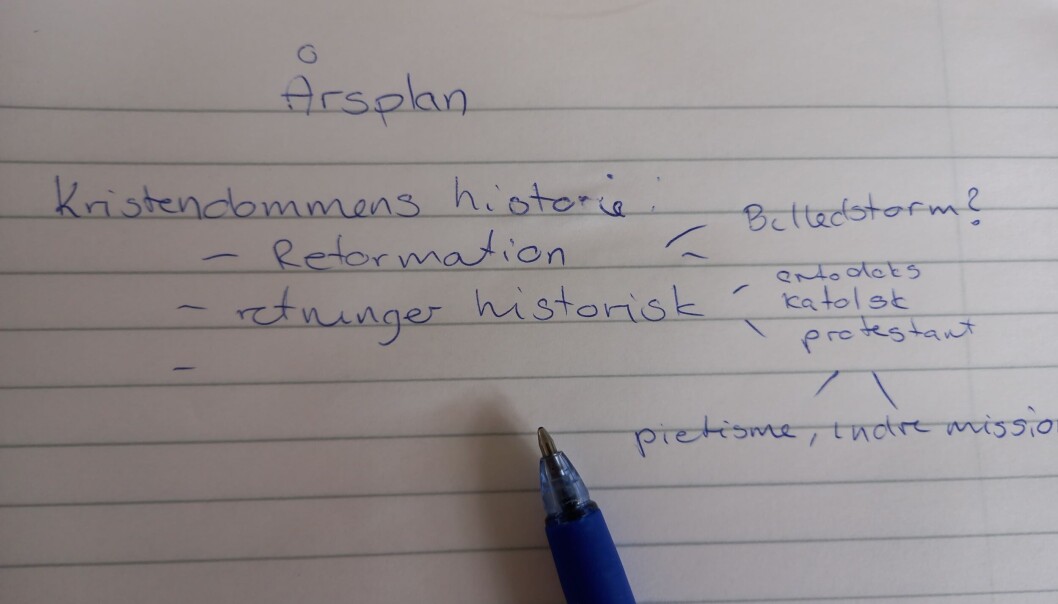 Årsplan
Kristendommens historie:
- Reformation
Billedstorm?
- retninger historisk
ortodoks
katolsk
protestant
-
pietisme, indre missio